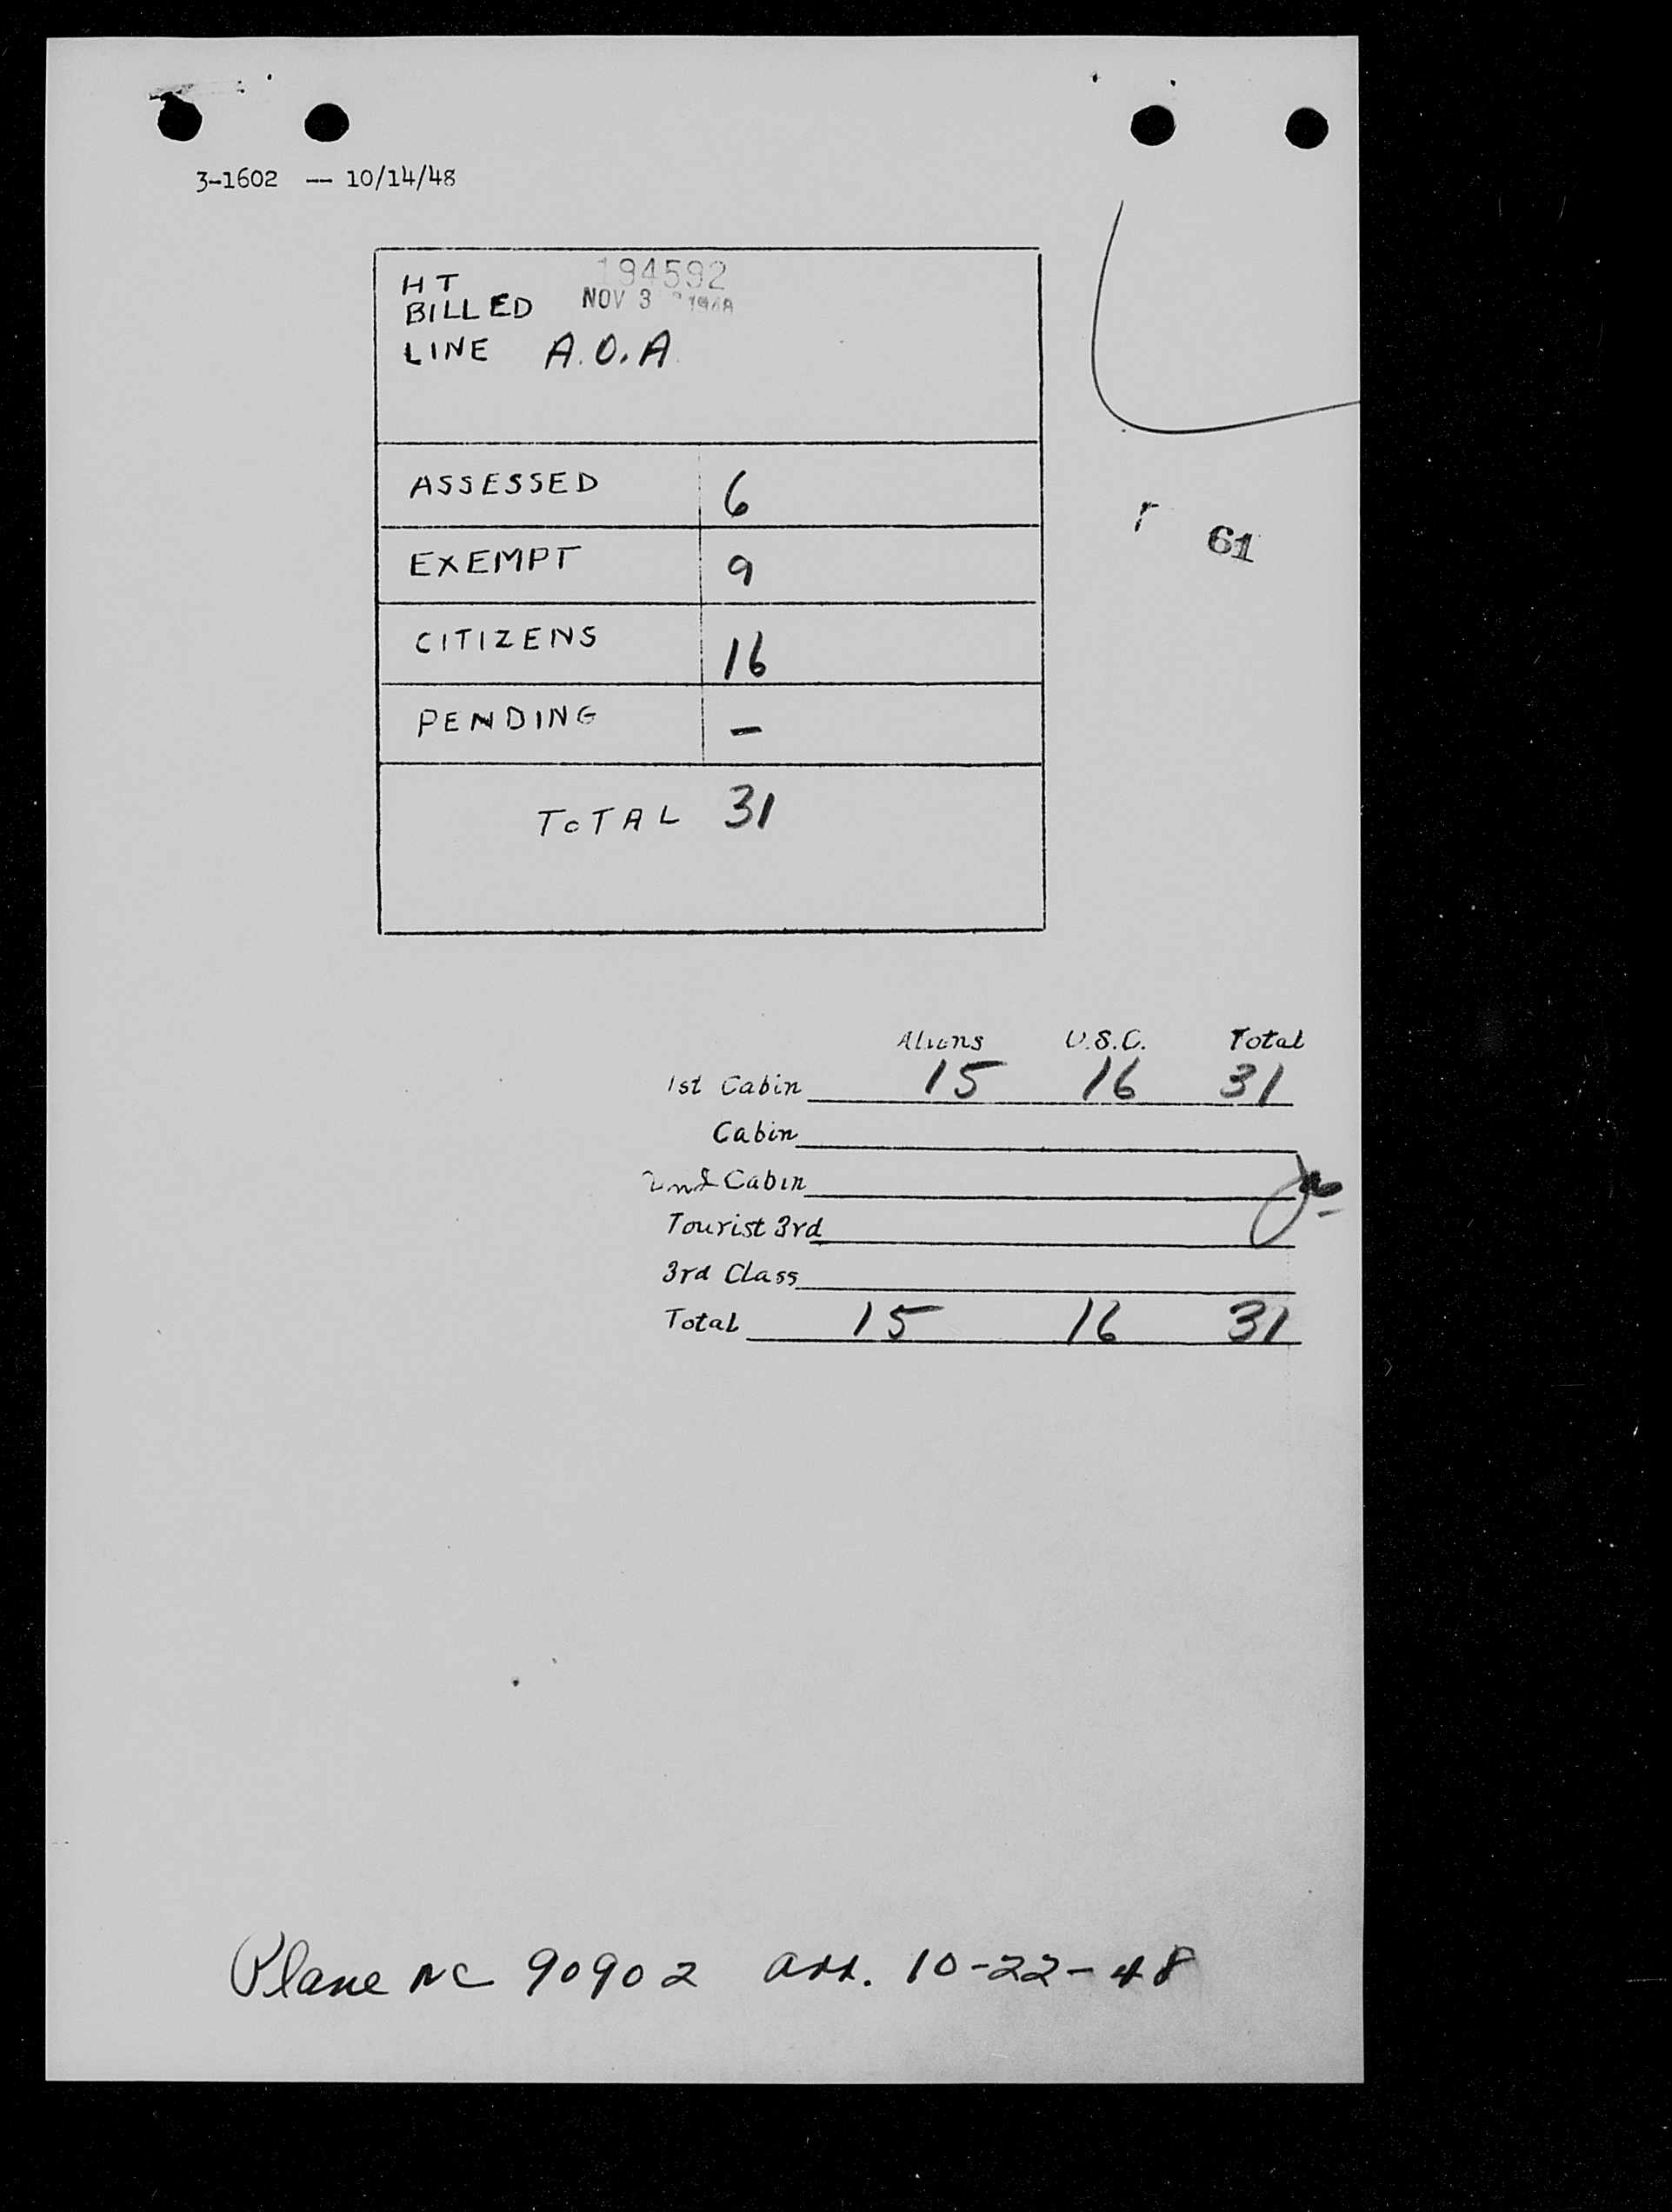 3-1602 -- 10/14/48
HT 194592
BILLED NOV 3 1948
LINE A.O.A.
ASSESSED 6
EXEMPT 9
61
CITIZENS 16
PENDING –
TOTAL 31
Aliens U.S.C. Total
1st Cabin 15 16 31
Cabin
2nd Cabin
Tourist 3rd
3rd Class
Total 15 16 31
Plane NC 90902 arr. 10-22-48